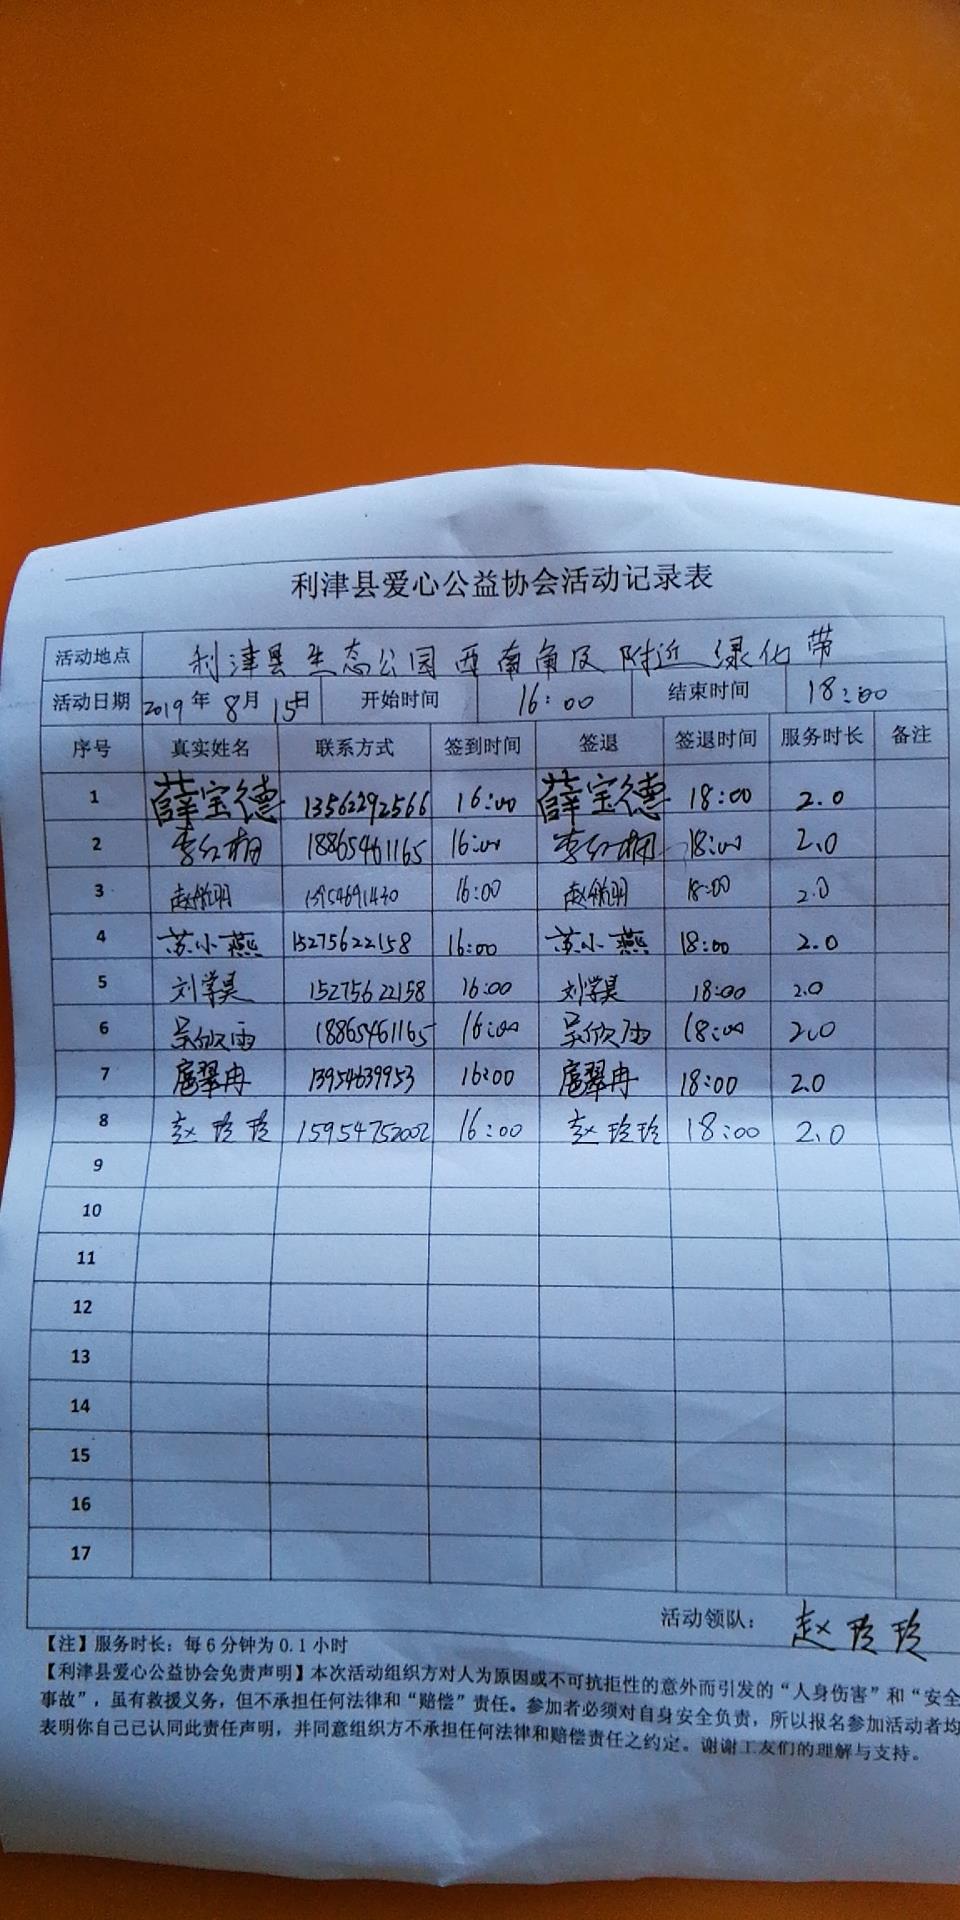 利津县爱心公益协会活动记录表
活动地点 利津县生态公园西南角及附近绿化带
活动日期 2019年8月15日 开始时间 16:00 结束时间 18:00
序号 真实姓名 联系方式 签到时间 签退 签退时间 服务时长 备注
1 薛宝德 13562292566 16:00 薛宝德 18:00 2.0
2 李红梅 18865461165 16:00 李红梅 18:00 2.0
3 13954691430 16:00 18:00 2.0
4 苏小燕 15275622158 16:00 苏小燕 18:00 2.0
5 刘学昊 15275622158 16:00 刘学昊 18:00 2.0
6 吴欣雨 18865461165 16:00 吴欣雨 18:00 2.0
7 扈翠冉 13954639953 16:00 扈翠冉 18:00 2.0
8 赵玲玲 15954752002 16:00 赵玲玲 18:00 2.0
9
10
11
12
13
14
15
16
17
活动领队： 赵玲玲
【注】服务时长：每6分钟为0.1小时
【利津县爱心公益协会免责声明】本次活动组织方对人为原因或不可抗拒性的意外而引发的“人身伤害”和“安全
事故”，虽有救援义务，但不承担任何法律和“赔偿”责任。参加者必须对自身安全负责，所以报名参加活动者均
表明你自己已认同此责任声明，并同意组织方不承担任何法律和赔偿责任之约定。谢谢工友们的理解与支持。